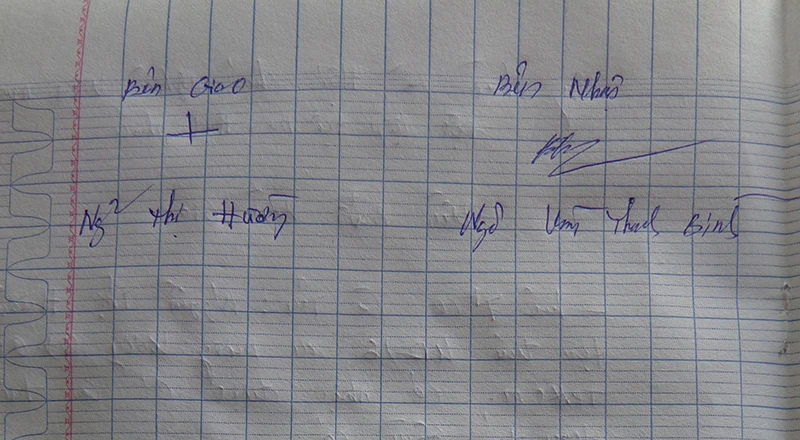 Bên Giao Bên Nhận
Ng² Thị Hường Ngô Văn Thanh Bình